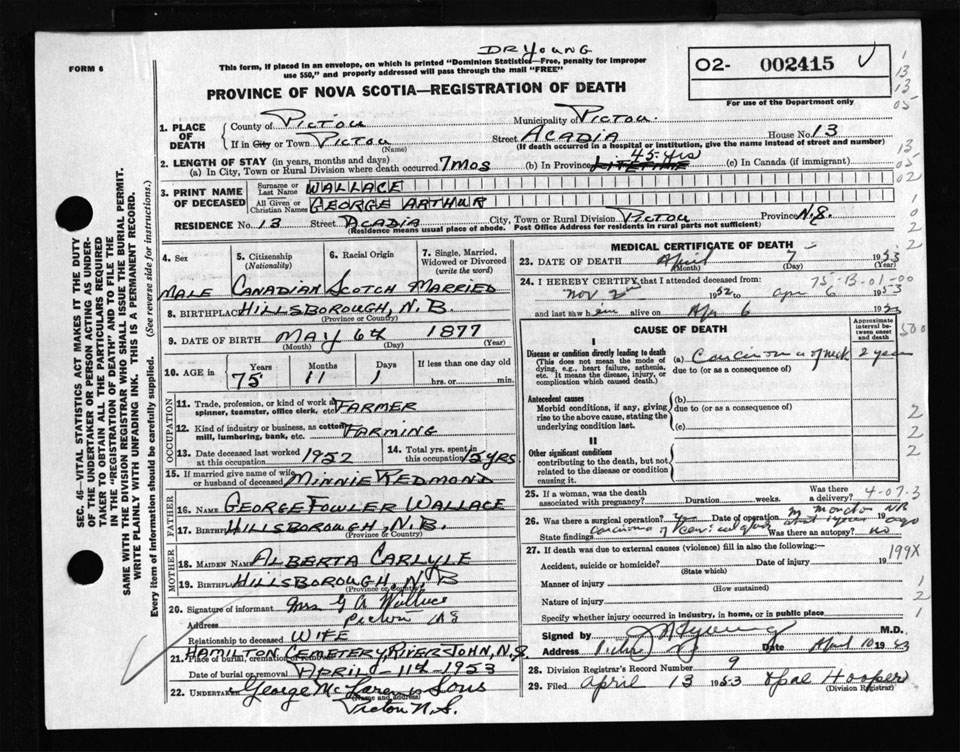 DR YOUNG
FORM 6
This form, if placed in an envelope, on which is printed "Dominion Statistics—Free, penalty for improper
use $50," and properly addressed will pass through the mail "FREE"
PROVINCE OF NOVA SCOTIA—REGISTRATION OF DEATH
O2- 002415
For use of the Department only
1
13
13
05
13
05
02
1. PLACE OF DEATH
County of Pictou Municipality of Pictou
If in City or Town Pictou Street ACADIA House No. 13
(Name) (If death occurred in a hospital or institution, give the name instead of street and number)
2. LENGTH OF STAY (in years, months and days)
45 yrs
(a) In City, Town or Rural Division where death occurred 7 mos (b) In Province LIFETIME (c) In Canada (if immigrant)
3. PRINT NAME OF DECEASED
Surname or Last Name WALLACE
All Given or Christian Names GEORGE ARTHUR
RESIDENCE No. 13 Street ACADIA City, Town or Rural Division PICTOU Province N.S.
(Residence means usual place of abode. Post Office Address for residents in rural parts not sufficient)
4. Sex 5. Citizenship (Nationality) 6. Racial Origin 7. Single, Married, Widowed or Divorced (write the word)
MALE CANADIAN SCOTCH MARRIED
8. BIRTHPLACE HILLSBOROUGH, N.B.
(Province or Country)
9. DATE OF BIRTH MAY 6th 1877
(Month) (Day) (Year)
10. AGE in Years Months Days If less than one day old
75 11 1 hrs. or min.
OCCUPATION
11. Trade, profession, or kind of work as spinner, teamster, office clerk, etc. FARMER
12. Kind of industry or business, as cotton mill, lumbering, bank, etc. FARMING
13. Date deceased last worked at this occupation 1952 14. Total yrs. spent in this occupation 15 YRS
15. If married give name of wife or husband of deceased MINNIE REDMOND
FATHER
16. NAME GEORGE FOWLER WALLACE
17. BIRTHPLACE HILLSBOROUGH, N.B.
(Province or Country)
MOTHER
18. MAIDEN NAME ALBERTA CARLYLE
19. BIRTHPLACE HILLSBOROUGH, N.B
(Province or Country)
20. Signature of informant Mrs G A Wallace
Address Pictou NS
Relationship to deceased WIFE
HAMILTON CEMETERY, RIVER JOHN, N.S.
21. Place of burial, cremation or removal
Date of burial or removal APRIL-11th-1953
22. Undertaker George McLaren & Sons
(Name and address)
Pictou N.S.
MEDICAL CERTIFICATE OF DEATH
23. DATE OF DEATH April 7 1953
(Month) (Day) (Year)
75-B-01-00
24. I HEREBY CERTIFY that I attended deceased from:
Nov 2nd 1952 to apr 6 1953
and last saw him alive on Apr 6 1953
CAUSE OF DEATH
Approximate interval between onset and death
I
Disease or condition directly leading to death
(This does not mean the mode of dying, e.g., heart failure, asthenia, etc. It means the disease, injury, or complication which caused death.)
(a) Carcinoma of neck 2 year
due to (or as a consequence of)
Antecedent causes
Morbid conditions, if any, giving rise to the above cause, stating the underlying condition last.
(b)
due to (or as a consequence of)
(c)
II
Other significant conditions
contributing to the death, but not related to the disease or condition causing it.
25. If a woman, was the death associated with pregnancy? Duration weeks. Was there a delivery? 4-07-3
26. Was there a surgical operation? yes Date of operation 19
State findings Carcinoma of Was there an autopsy? no
27. If death was due to external causes (violence) fill in also the following:—
Accident, suicide or homicide? Date of injury 19
(State which)
199X
Manner of injury
(How sustained)
Nature of injury
Specify whether injury occurred in industry, in home, or in public place
Signed by M.D.
Address Pictou NS Date April 10 1953
28. Division Registrar's Record Number 9
29. Filed April 13 1953 Opal Hooper
(Division Registrar)
SEC. 46—VITAL STATISTICS ACT MAKES IT THE DUTY
OF THE UNDERTAKER OR PERSON ACTING AS UNDER-
TAKER TO OBTAIN ALL THE PARTICULARS REQUIRED
IN THE "REGISTRATION OF DEATH" AND TO FILE THE
SAME WITH THE DIVISION REGISTRAR WHO SHALL ISSUE THE BURIAL PERMIT.
WRITE PLAINLY WITH UNFADING INK. THIS IS A PERMANENT RECORD.
Every item of information should be carefully supplied. (See reverse side for instructions.)